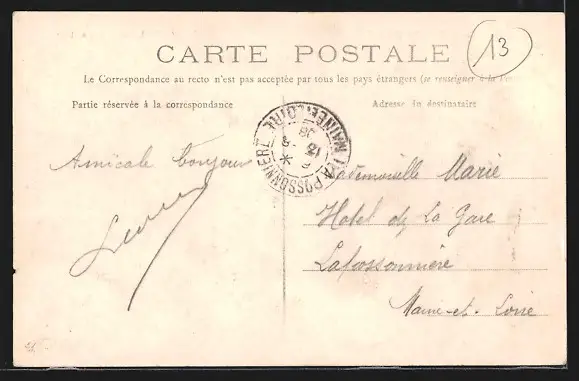 CARTE POSTALE
13
Le Correspondance au recto n'est pas acceptée par tous les pays étrangers (se renseigner à la P
Partie réservée à la correspondance
Adresse du destinataire
LA POSSONNIERE MAINE-ET-LOIRE
Amicale bonjour
Mademoiselle Marie
Hotel de La Gare
Lapossonnière
Maine-et-Loire